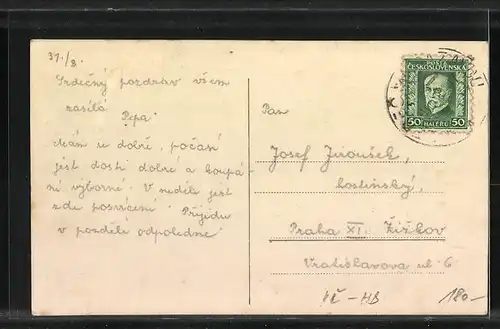 31./8.
Srdečný pozdrav všem
zasílá
Pepa.
Mám se dobře, počasí
jest dosti dobré a koupá-
ní výborné. V neděli jest
zde posvícení. Přijedu
v pondělí odpoledne
POŠTA
ČESKOSLOVENSKÁ
50 HALÉŘŮ 50
Pan
Josef Jiroušek,
hostinský,
Praha XI. Žižkov
Vratislavova ul. 6
180.-